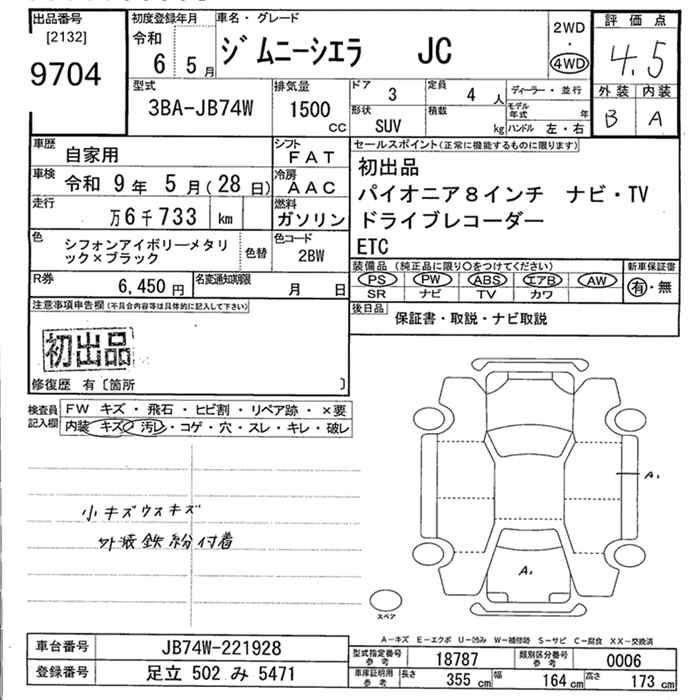 出品番号
[2132]
9704
初度登録年月
令和
6 5月
車名・グレード
ジムニーシエラ JC
2WD
・
4WD
評価点
4.5
外装 内装
B A
型式
3BA-JB74W
排気量
1500
CC
ドア 3
定員 4 人
形状
SUV
積数
kg
ディーラー・並行
モデル年式 年
ハンドル 左・右
車歴 自家用
シフト FAT
車検 令和 9年 5月(28日)
冷房 AAC
走行 万6千733 km
燃料 ガソリン
色 シフォンアイボリーメタリ
ック×ブラック
色替
色コード
2BW
R券 6,450円
名変通知期限 月 日
セールスポイント(正常に機能するものに限ります)
初出品
パイオニア8インチ ナビ・TV
ドライブレコーダー
ETC
装備品 (純正品に限り○をつけてください)
PS PW ABS エアB AW
SR ナビ TV カワ
新車保証書
有・無
後日品 保証書・取説・ナビ取説
注意事項申告欄(不具合内容等は具体的に記入して下さい)
初出品
修復歴 有〔箇所 〕
検査員
記入欄
FW キズ・飛石・ヒビ割・リペア跡・×要
内装 キズ・汚レ・コゲ・穴・スレ・キレ・破レ
小キズウスキズ
外装鉄粉付着
A₁
A₁
スペア
A-キズ E-エクボ U-凹み W-補修跡 S-サビ C-腐食 XX-交換済
車台番号 JB74W-221928
登録番号 足立 502 み 5471
型式指定番号
参考
18787
類別区分番号
参考
0006
車庫証明用
参考
長さ 355 cm 幅 164 cm 高さ 173 cm